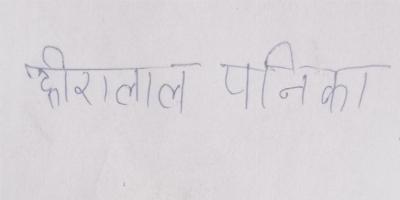 हीरालाल पनिका